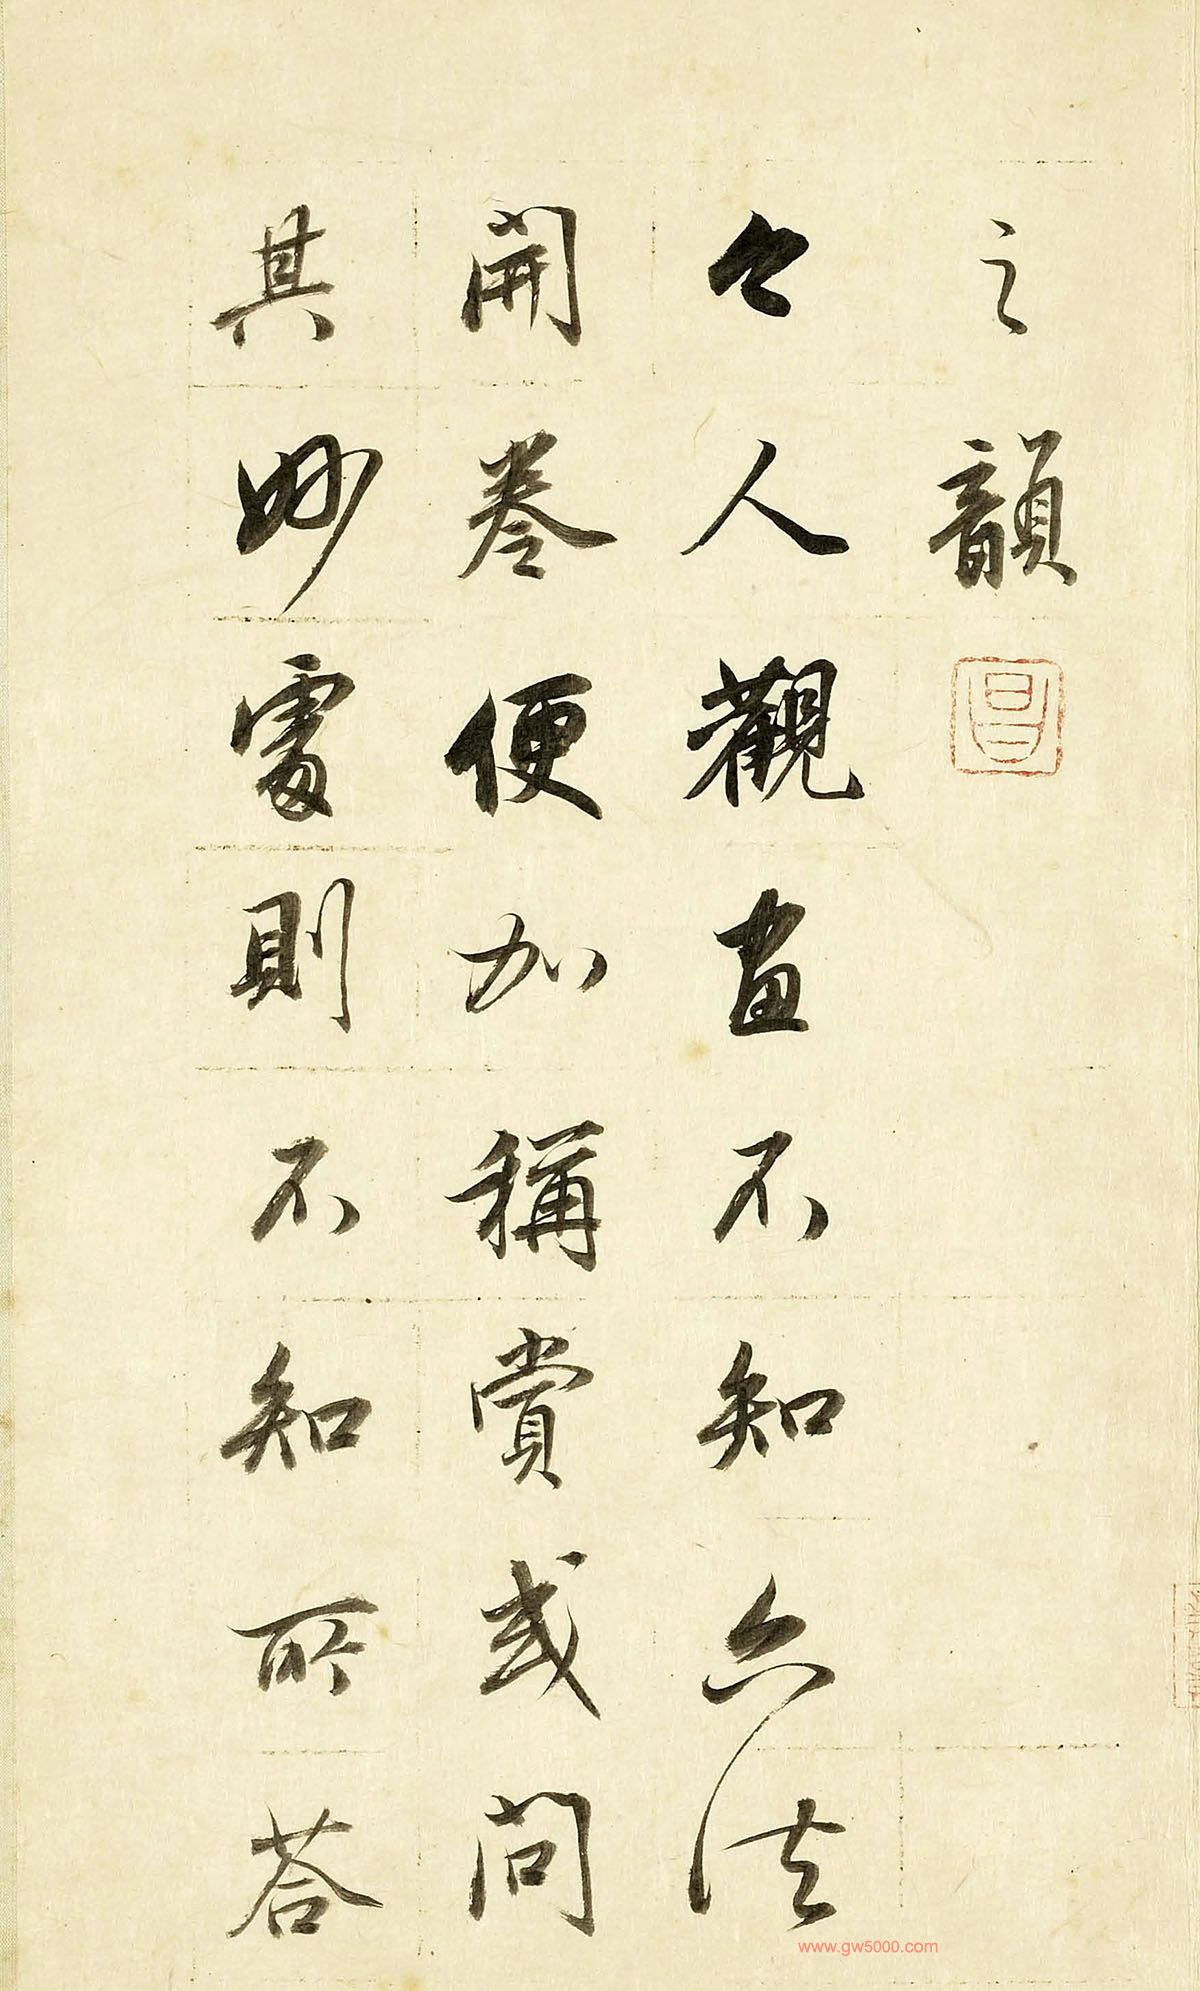 之韻
昌
今人觀畫不知六法
開卷便加稱賞或問
其妙處則不知所荅
www.gw5000.com